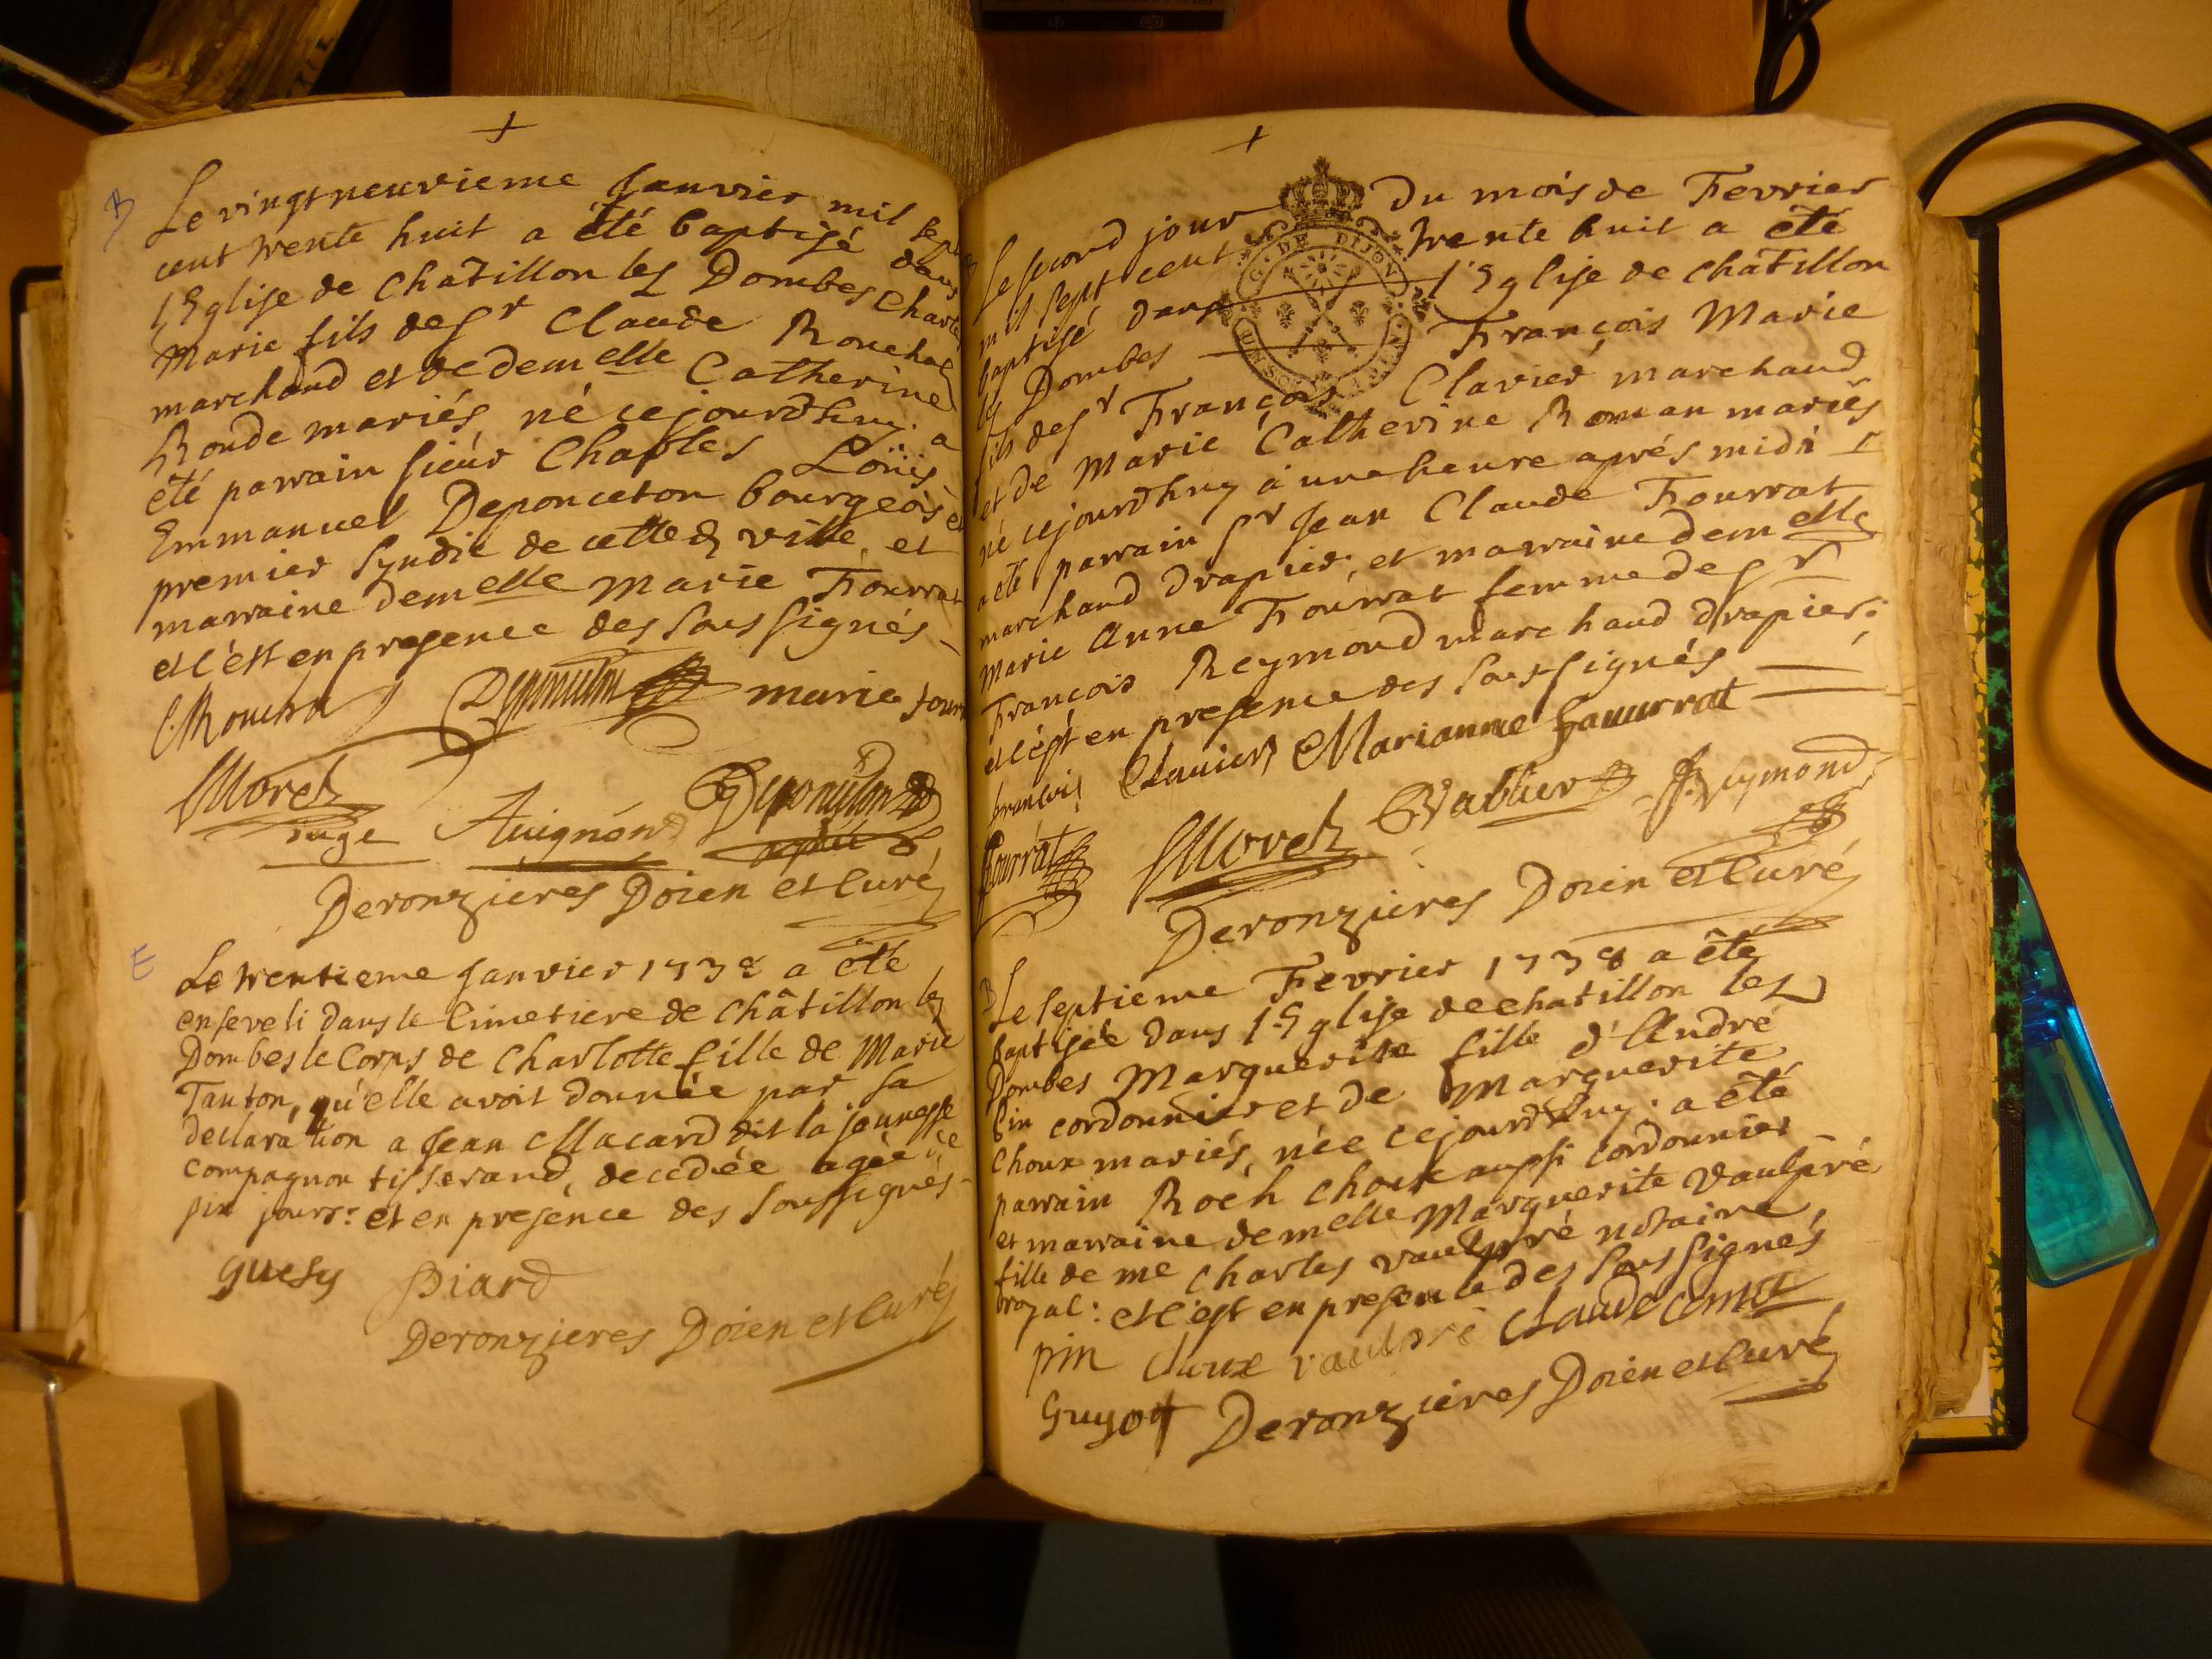 B
Le vingt neuvieme Janvier mil sept
cent trente huit a été baptisé dans
l'Eglise de Chatillon les Dombes Charles
Marie fils de Sr Claude Rouchas
marchand et de demelle Catherine
Ronde mariés, né cejourd'huy. a
été parrain sieur Charles Loüis
Emmanuel Deponceton bourgeois et
premier syndic de cette d. ville, et
marraine demelle Marie Fourrat
et c'est en presence des soussignés
marie
Moret
juge Avignon Deponceton
Deronzieres Doien et Curé
E
Le trentieme Janvier 1738 a été
enseveli dans le Cimetiere de Châtillon les
Dombes le Corps de Charlotte fille de Marie
Tanton, qu'elle avoit donnée par sa
declaration a Jean Macard dit la jeunesse
compagnon tisserand, decedée agée de
six jours: et en presence des soussignés
guesy Piard
Deronzieres Doien et Curé
Le second jour du mois de Fevrier
mil sept cent trente huit a été
baptisé dans l'Eglise de Châtillon
les Dombes François Marie
fils de Sr François Clavier marchand
et de Marie Catherine Roman mariés
né cejourd'huy a une heure aprés midi
a été parrain Sr Jean Claude Fourrat
marchand drapier, et marraine demelle
Marie Anne Fourrat femme de Sr
François Reymond marchand drapier:
et c'est en presence des soussignés
françois Clavier Marianne fourrat
fourrat Moret Vablier Reymond
Deronzieres Doien et Curé
B
Le septieme Fevrier 1738 a été
baptisée dans l'Eglise de chatillon les
Dombes Marguerite fille d'André
Pin cordonnier et de Marguerite
Choux mariés, née cejourd'huy: a été
parrain Roch choux aussi cordonnier
et marraine demelle Marguerite Vaulpré
fille de me Charles vaulpré notaire
royal: et c'est en presence des soussignés
pin choux vaulpré Claude
Guyot Deronzieres Doien et Curé